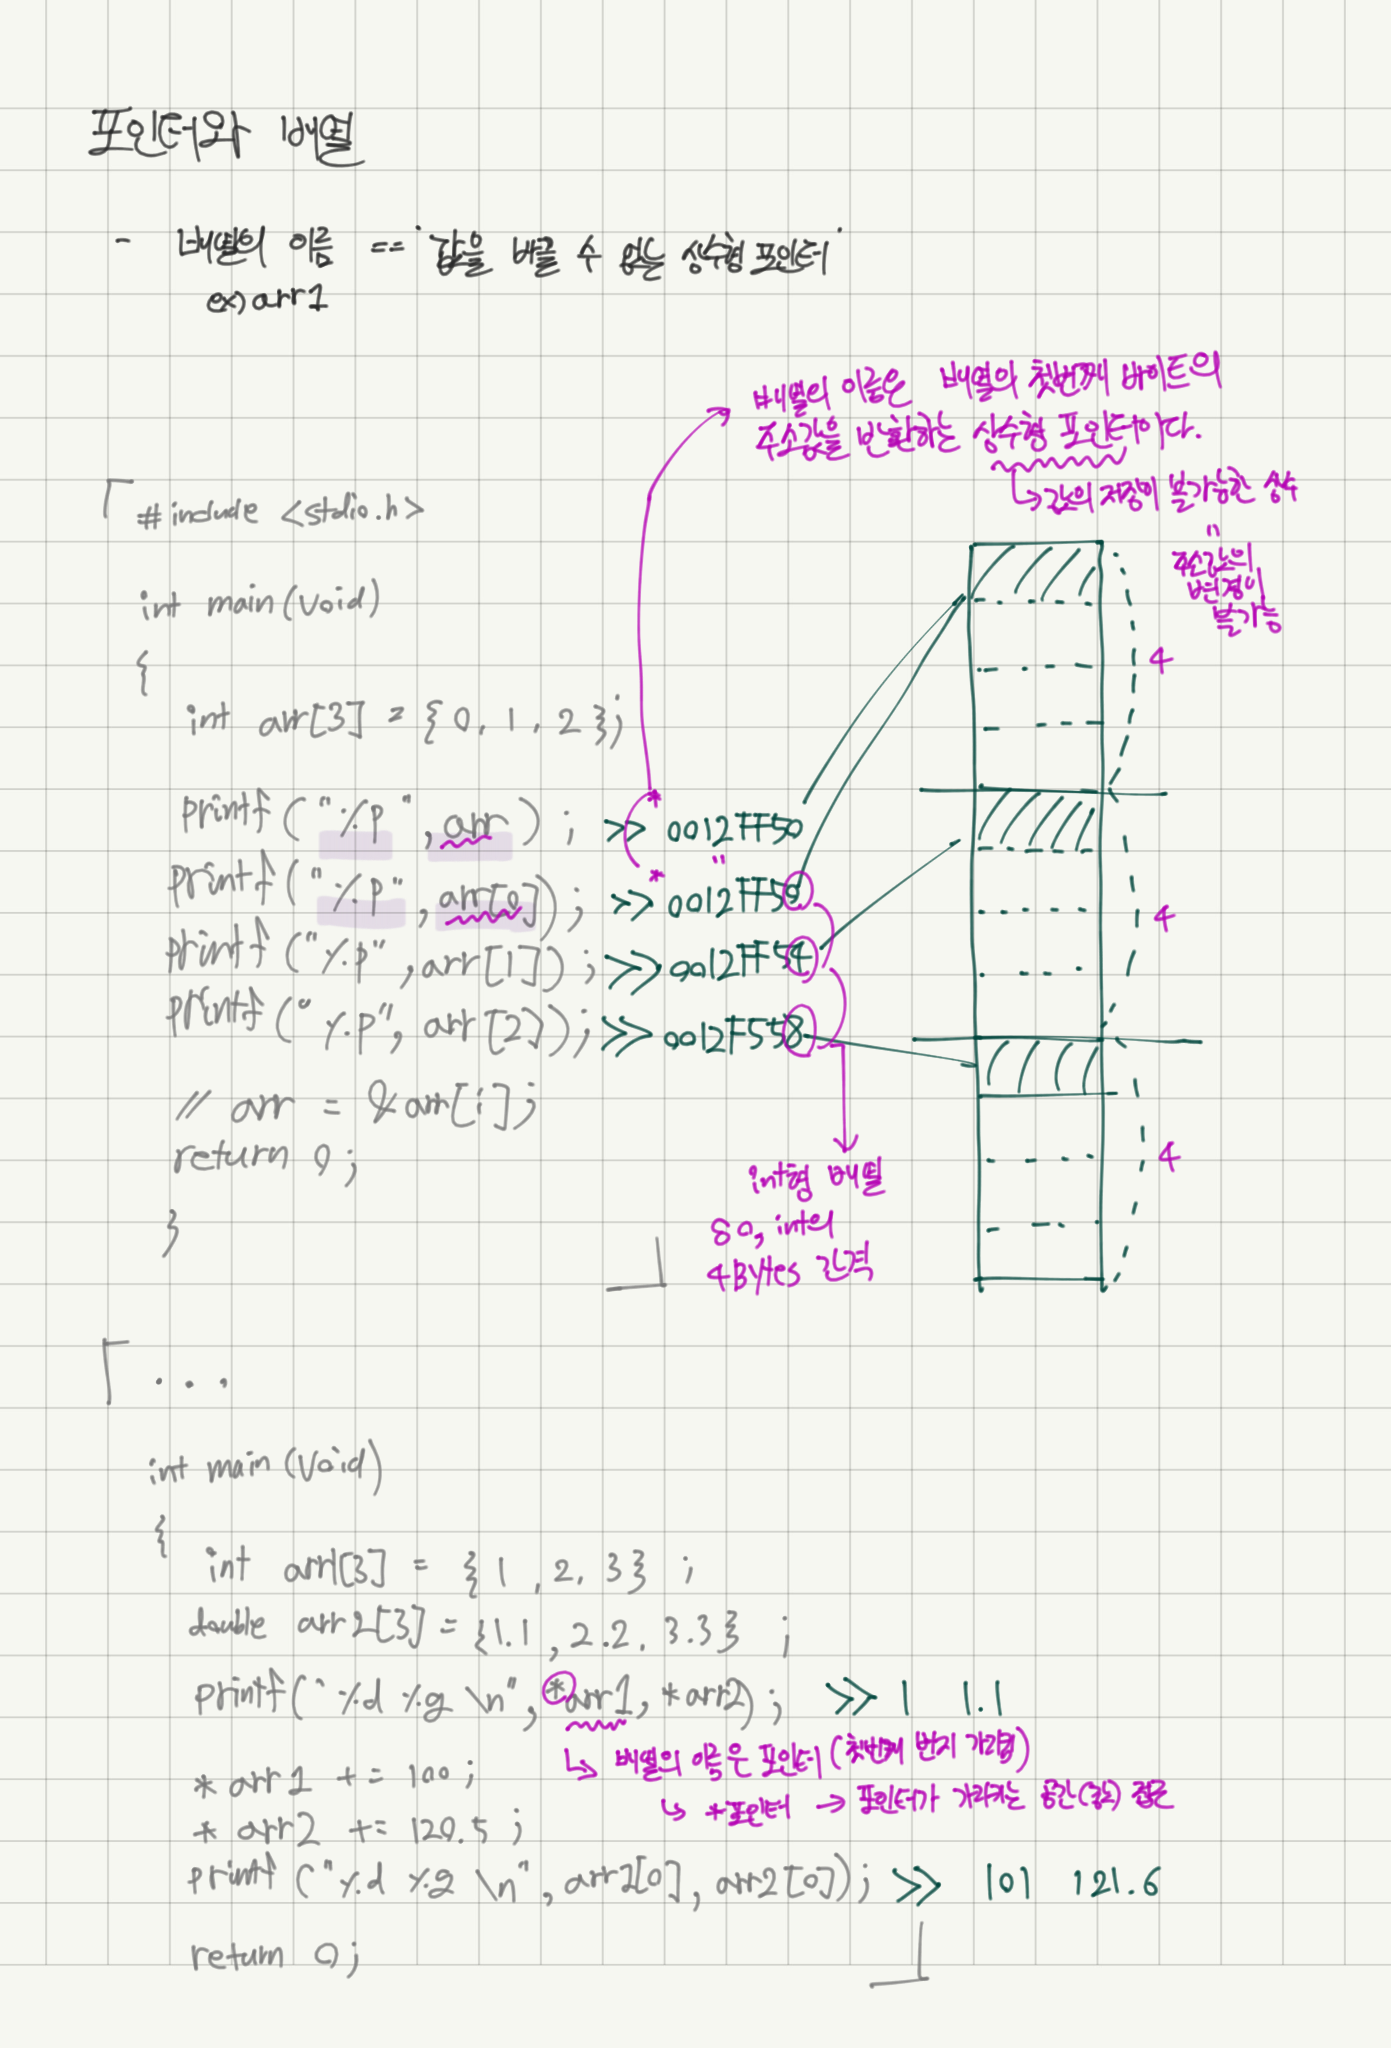 포인터와 배열
- 배열의 이름 == '값을 바꿀 수 없는 상수형 포인터'
ex) arr1
배열의 이름은 배열의 첫번째 바이트의
주소값을 반환하는 상수형 포인터이다.
↳ 값의 저장이 불가능한 상수
"
주소값의
변경이
불가능
#include <stdio.h>
int main(void)
{
int arr[3] = {0, 1, 2};
printf("%p", arr); >> 0012FF50
"
printf("%p", arr[0]); >> 0012FF50
printf("%p", arr[1]); >> 0012FF54
printf("%p", arr[2]); >> 0012F558
// arr = &arr[i];
return 0;
}
4
4
4
int형 배열
so, int의
4Bytes 간격
...
int main(void)
{
int arr1[3] = {1, 2, 3};
double arr2[3] = {1.1, 2.2, 3.3};
printf("%d %g \n", *arr1, *arr2); >> 1 1.1
↳ 배열의 이름은 포인터(첫번째 번지 가리킴)
↳ *포인터 → 포인터가 가리키는 공간(값) 접근
*arr1 += 100;
*arr2 += 120.5;
printf("%d %g \n", arr1[0], arr2[0]); >> 101 121.6
return 0;